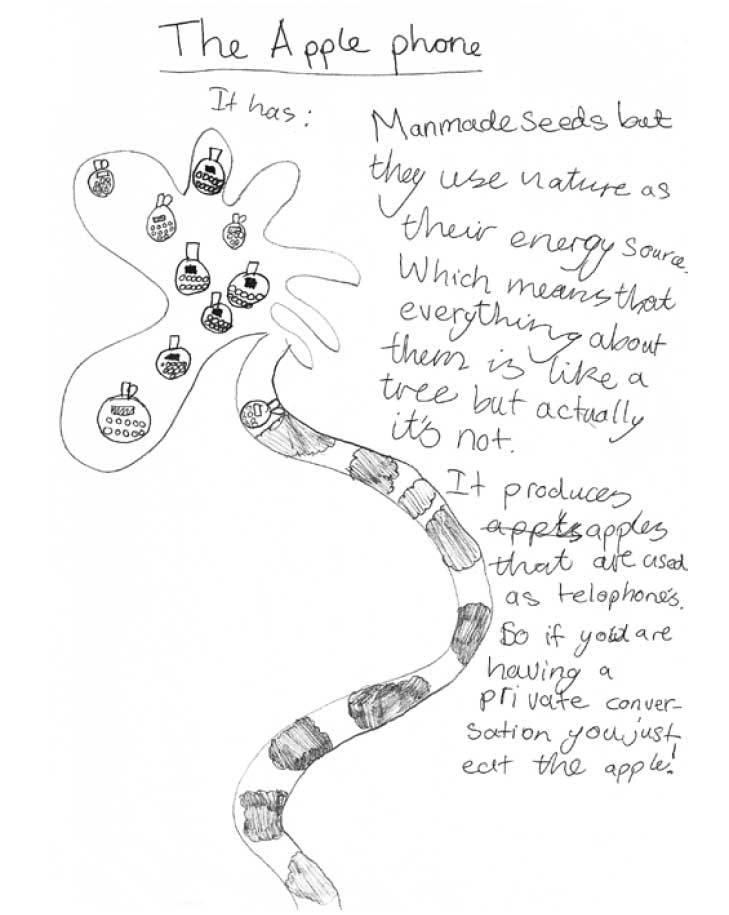 The Apple phone
It has:
Manmade seeds but
they use nature as
their energy source.
Which means that
everything about
them is like a
tree but actually
it's not.
It produces
apples
that are used
as telophones.
So if you are
having a
private conver-
sation you just
eat the apple!